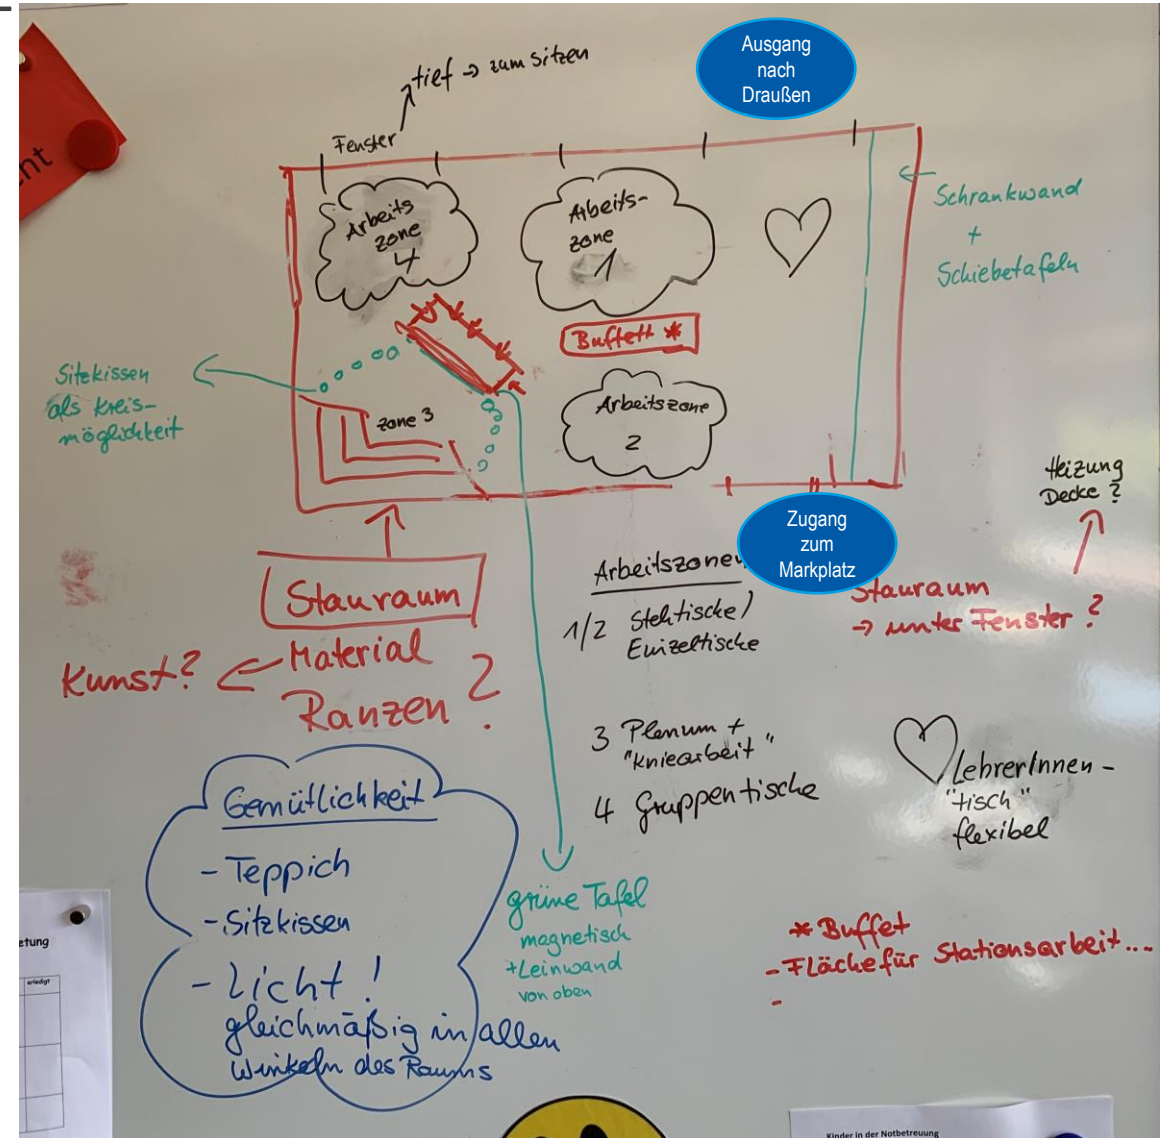 nt
tief → zum Sitzen
Fenster
Ausgang
nach
Draußen
Arbeits
zone
4
Arbeits-
zone
1
Schrankwand
+
Schiebetafeln
Buffett *
Sitzkissen
als Kreis-
möglichkeit
zone 3
Arbeitszone
2
Heizung
Decke?
Zugang
zum
Markplatz
Stauraum
Material
Ranzen?
Kunst?
Arbeitszonen
1/2 Stehtische/
Einzeltische
3 Plenum +
"Kniearbeit"
4 Gruppentische
Stauraum
→ unter Fenster?
LehrerInnen-
"tisch"
flexibel
Gemütlichkeit
- Teppich
- Sitzkissen
- Licht!
gleichmäßig in allen
Winkeln des Raums
grüne Tafel
magnetisch
+ Leinwand
von oben
* Buffet
- Fläche für Stationsarbeit...
-
etung
erledigt
Kinder in der Notbetreuung